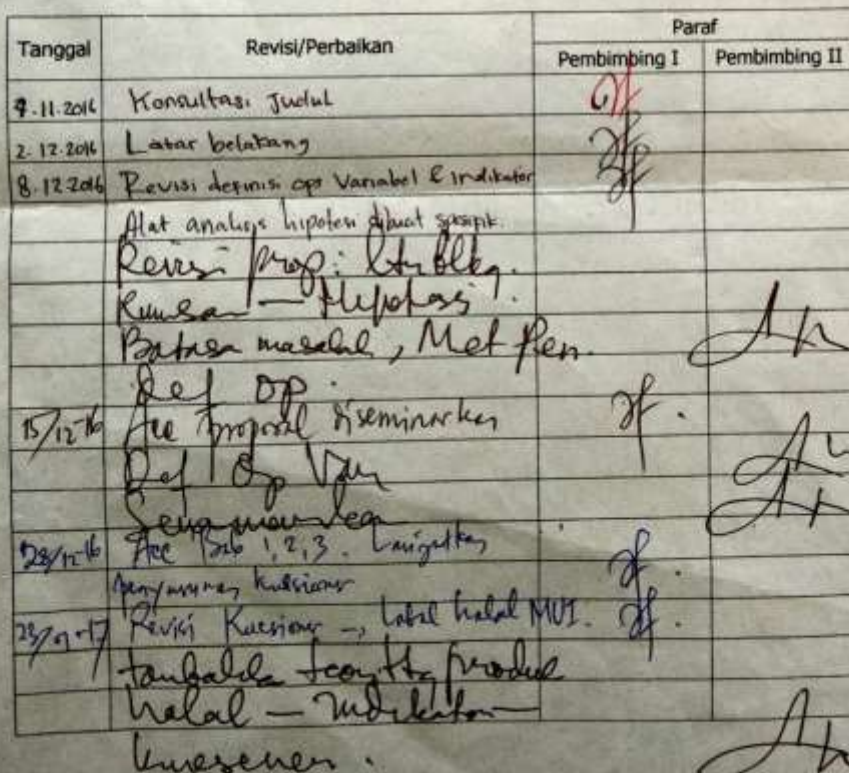 Tanggal Revisi/Perbaikan Paraf
Pembimbing I Pembimbing II
9.11.2016 Konsultasi Judul
2.12.2016 Latar belakang
8.12.2016 Revisi definisi ops Variabel & indikator
Alat analisis hipotesis dibuat spesifik.
Revisi prop: ltr blkg.
Rumusan — Hipotesis.
Batasan masalah, Met Pen.
Def Op.
15/12-16 Acc proposal diseminarkan
Def Op Var
28/12-16 Acc Bab 1, 2, 3. Lanjutkan
penyusunan kuesioner
Revisi Kuesioner -, Label halal MUI.
produk
halal — Indikator —
kuesener.